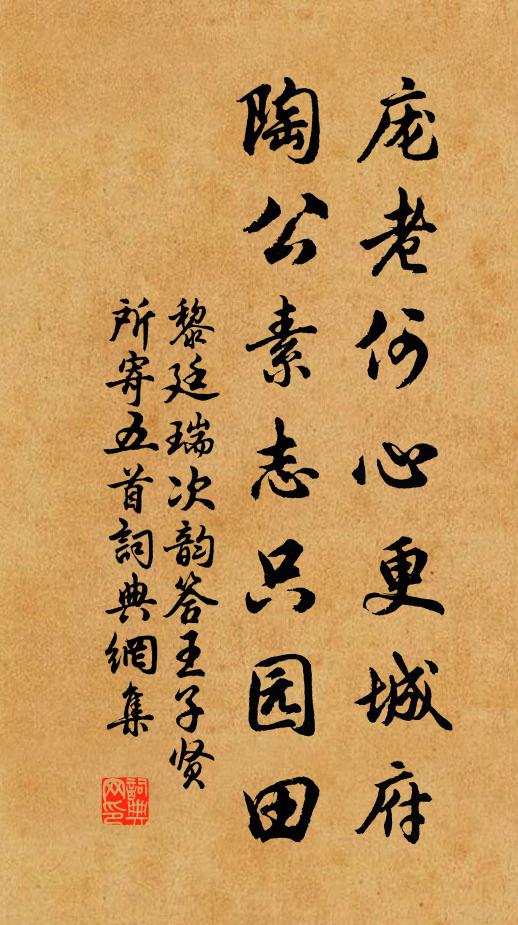 庞老何心更城府
陶公素志只园田
黎廷瑞次韵答王子贤
所寄五首詞典網集
詞典網印